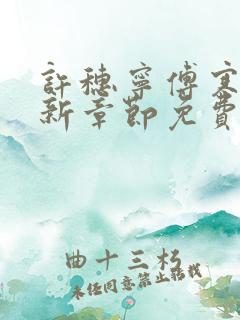 許穗寧傅寒
新章節免費
曲十三杉
未经同意禁止转载